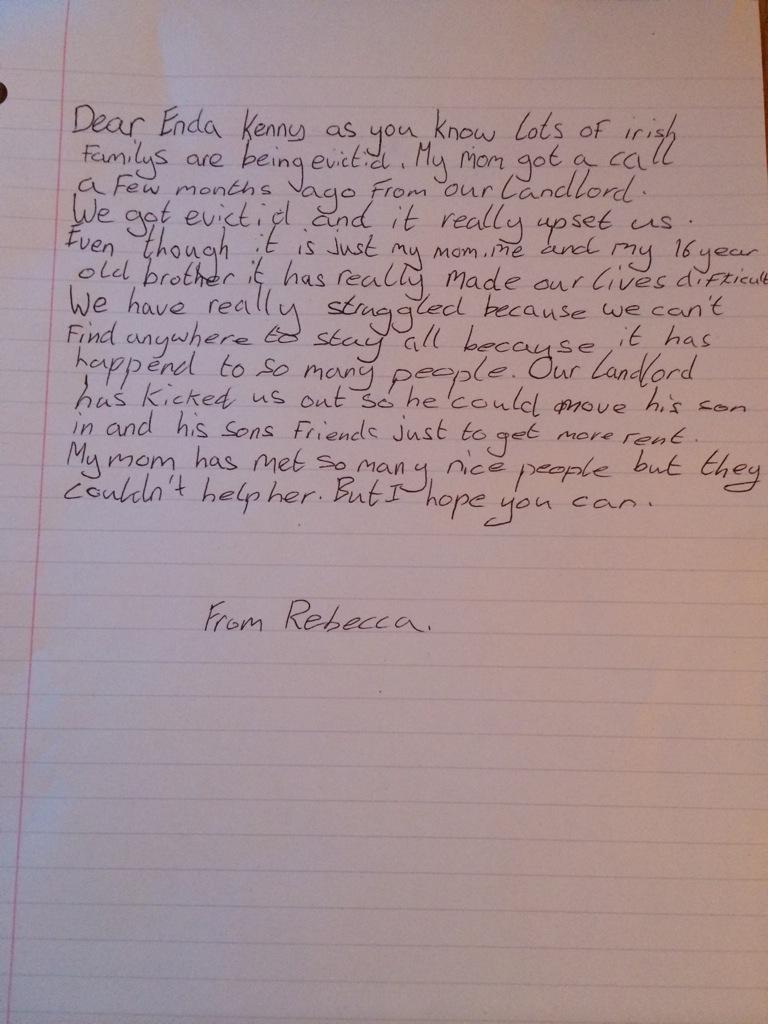 Dear Enda Kenny as you know lots of irish
Familys are being evictid. My mom got a call
a few months ago from our Landlord.
We got evictid and it really upset us.
Even though it is just my mom, me and my 16 year
old brother it has really made our lives difficult
We have really struggled because we can't
Find anywhere to stay all because it has
happend to so many people. Our Landlord
has kicked us out so he could move his son
in and his sons Friends just to get more rent.
My mom has met so many nice people but they
couldn't help her. But I hope you can.
From Rebecca.